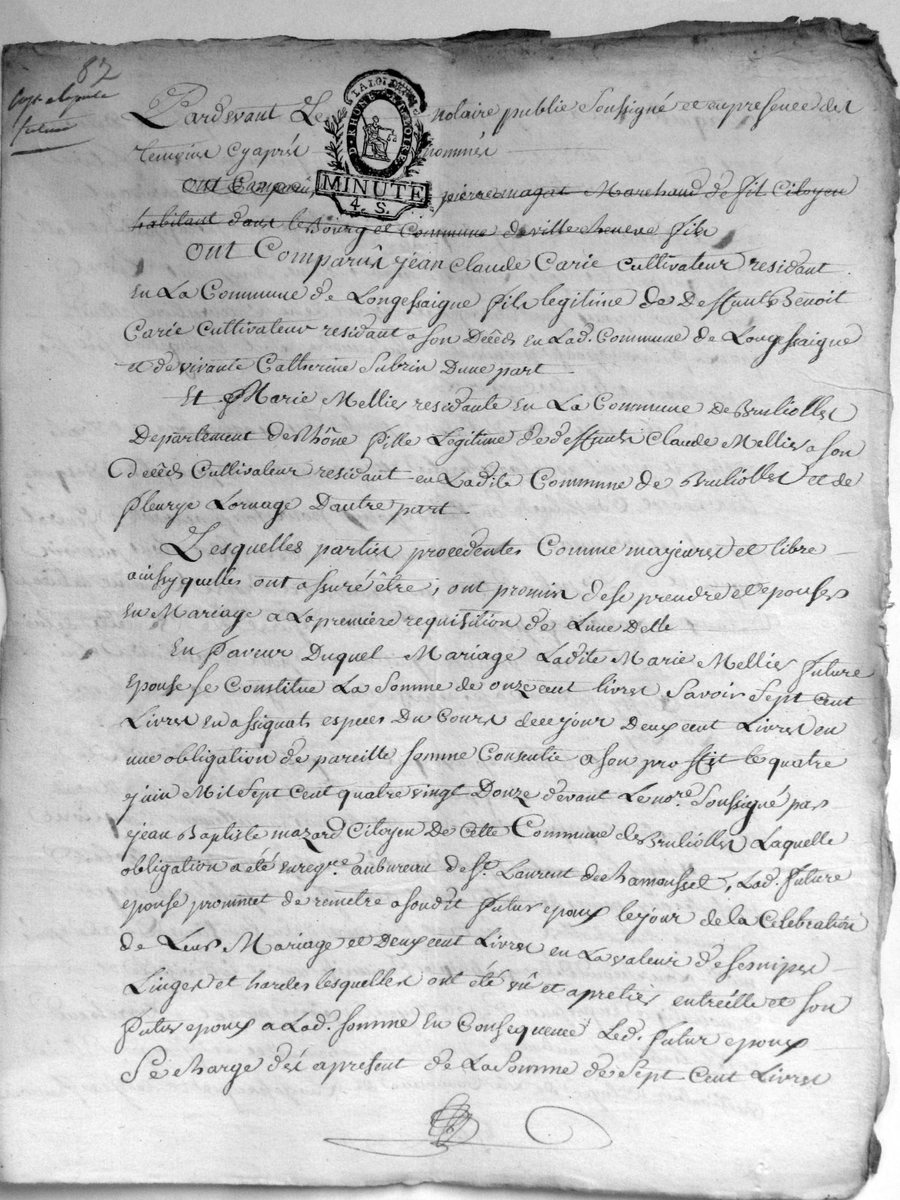 87
Pardevant Le notaire publie Soussigné et en presence des
temoins cyaprès nommés
LA LOI
D. RHÔNE ET LOIRE
MINUTE
4. S.
ont Comparu pierre magat Marchand de fil Citoyen
habitant dans le Bourg et Commune de ville Cheneve fils
ont Comparus jean Claude Carie Cultivateur residant
en La Commune de Longessaigne fils legitime de Deffunt Benoit
Carie Cultivateur residant a son Décéds en Lad. Commune de Longessaigne
et de vivante Catherine Subrin Dune part
Et Marie Mellier residante en La Commune de Brulioller
Departement de Rhône fille Legitime de deffunt Claude Mellier a son
Décéds Cultivateur residant en Ladite Commune de Brulioller et de
fleurye Lornage Dautre part
Lesquelles parties procedentes Comme majeures et libre
ainsy quelles ont assuré être, ont promis de se prendre et epouser
en Mariage a La première requisition de Lune Delle
En faveur Duquel Mariage Ladite Marie Mellier future
epouse se Constitue La Somme de onze cent livres Savoir Sept Cent
Livres en assignats especes Du Cours de ce jour Deux cent Livres en
une obligation de pareille somme Consentie a son proffit le quatre
juin Mil Sept Cent quatre vingt Douze devant Le nore. Soussigné par
jean Baptiste mazard Citoyen De Cette Commune de Brulioller Laquelle
obligation a été enregree. au bureau de St. Laurent de Chamousset, Lad. future
epouse prommet de remetre a sondit futur epoux le jour de la Celebration
de Leur Mariage et Deux cent Livres en La valeur de ses nipes
Linges et hardes lesquelles ont été vû et apretiés entreille et son
futur epoux a Lad. somme en Consequence Led. futur epoux
Se charge dès apresent de La Somme de Sept Cent Livres